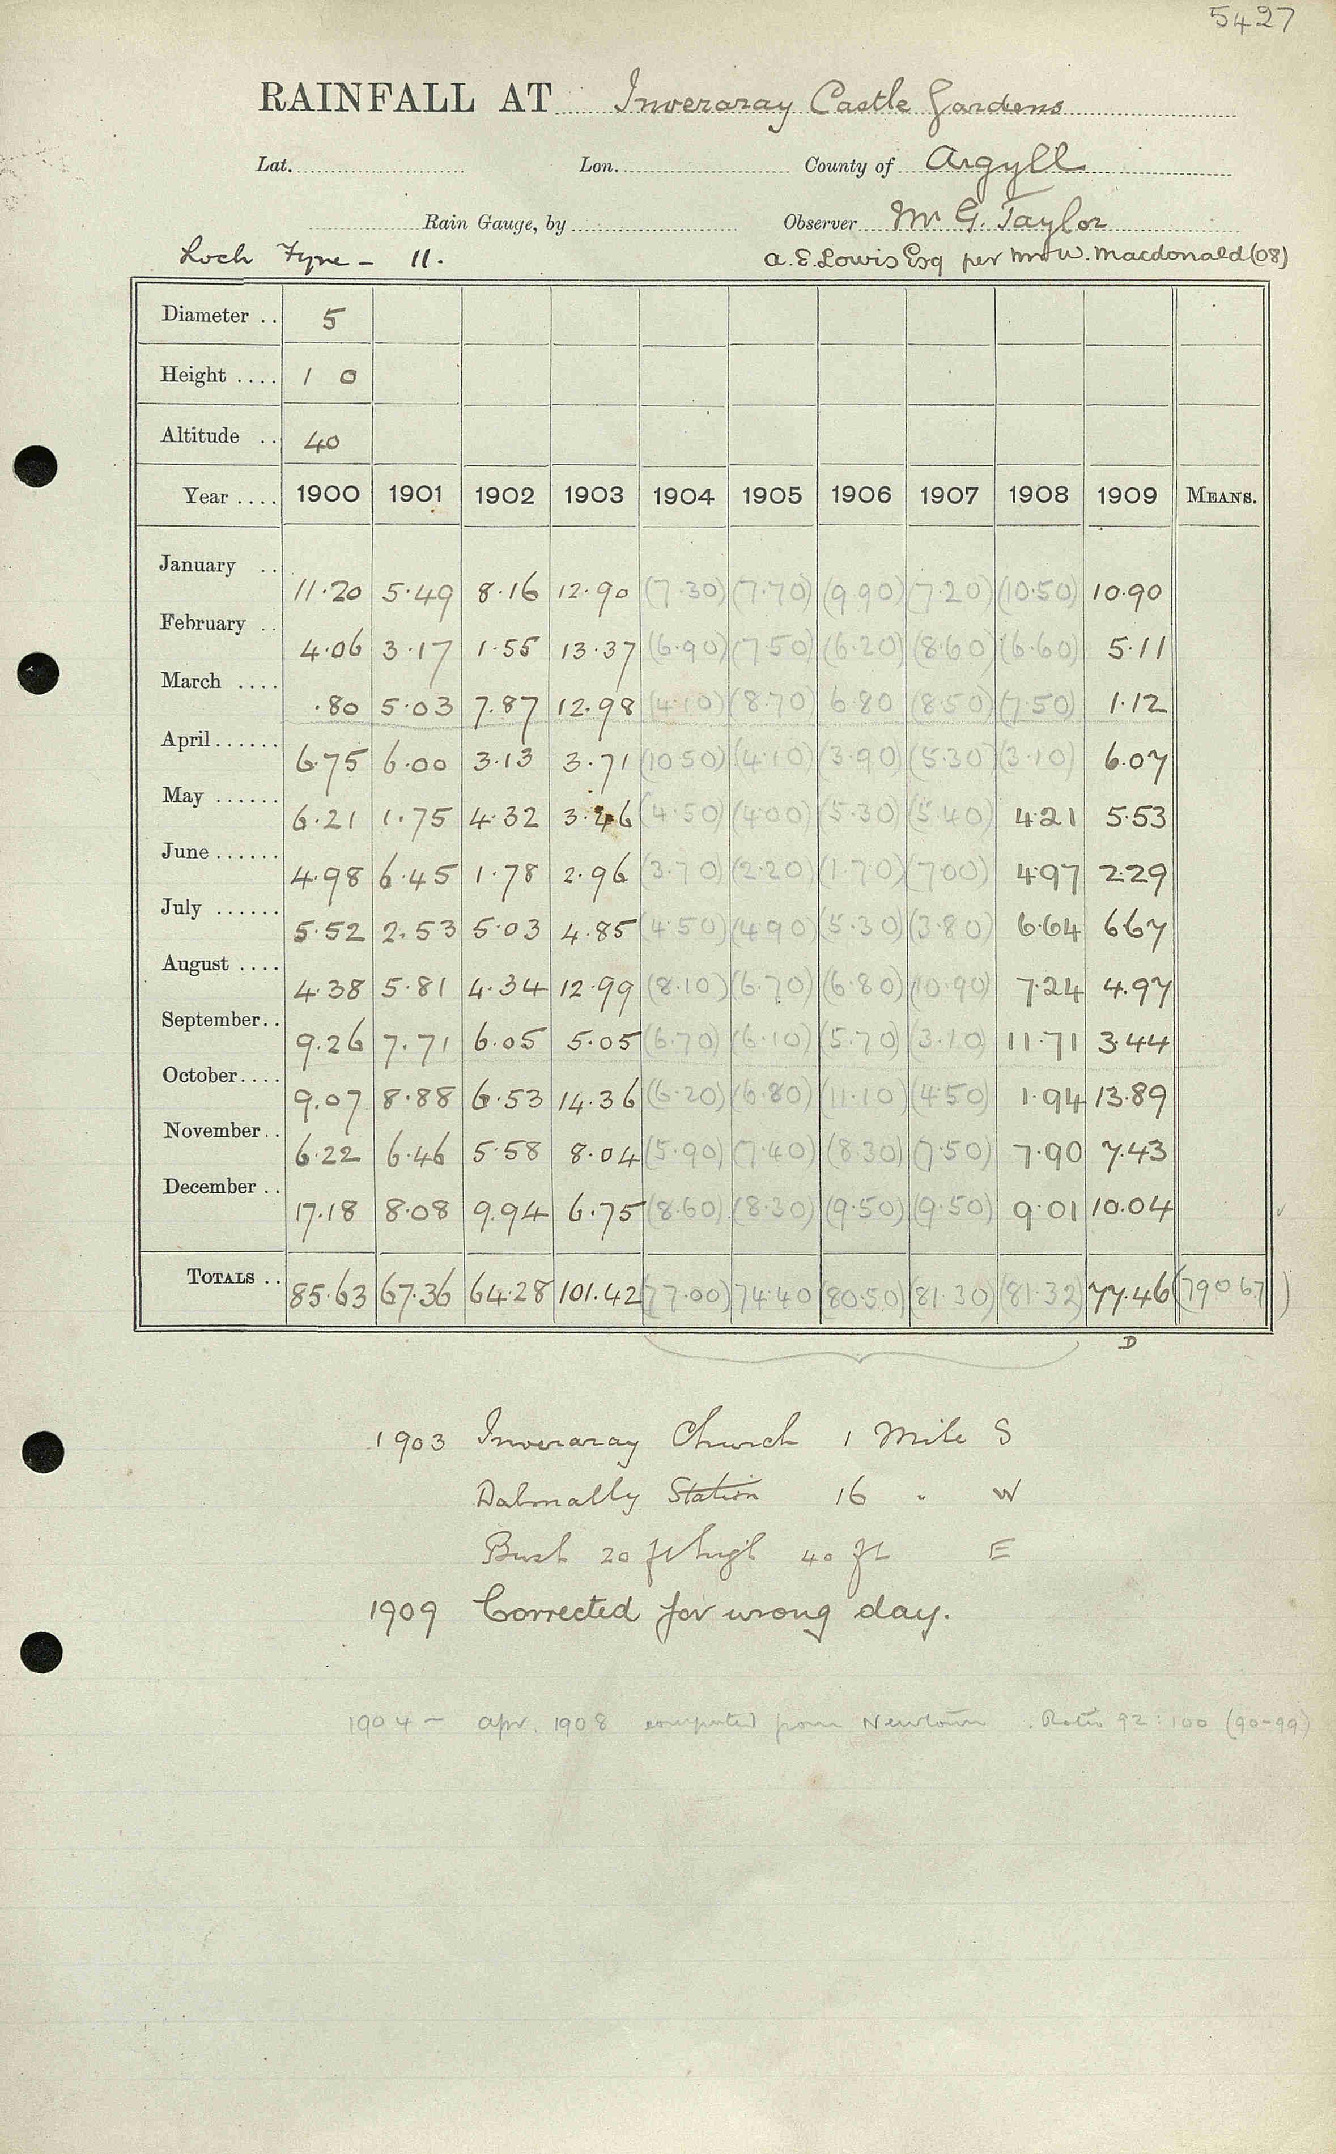 5427
RAINFALL AT Inveraray Castle Gardens
Lat. Lon. County of Argyll
Rain Gauge, by Observer Mr G. Taylor
Loch Fyne - 11. A. E. Lowis Esq per Mr W. Macdonald (08)
Diameter .. 5
Height .... 1 0
Altitude .. 40
Year .... 1900 1901 1902 1903 1904 1905 1906 1907 1908 1909 MEANS.
January .. 11.20 5.49 8.16 12.90 (7.30) (7.70) (9.90) (7.20) (10.50) 10.90
February .. 4.06 3.17 1.55 13.37 (6.90) (7.50) (6.20) (8.60) (6.60) 5.11
March .... .80 5.03 7.87 12.98 (4.10) (8.70) 6.80 (8.50) (7.50) 1.12
April...... 6.75 6.00 3.13 3.71 (10.50) (4.10) (3.90) (5.30) (3.10) 6.07
May ...... 6.21 1.75 4.32 3.46 (4.50) (4.00) (5.30) (5.40) 4.21 5.53
June...... 4.98 6.45 1.78 2.96 (3.70) (2.20) (1.70) (7.00) 4.97 2.29
July ...... 5.52 2.53 5.03 4.85 (4.50) (4.90) (5.30) (3.80) 6.64 6.67
August .... 4.38 5.81 4.34 12.99 (8.10) (6.70) (6.80) (10.90) 7.24 4.97
September.. 9.26 7.71 6.05 5.05 (6.70) (6.10) (5.70) (3.10) 11.71 3.44
October.... 9.07 8.88 6.53 14.36 (6.20) (6.80) (11.10) (4.50) 1.94 13.89
November.. 6.22 6.46 5.58 8.04 (5.90) (7.40) (8.30) (7.50) 7.90 7.43
December .. 17.18 8.08 9.94 6.75 (8.60) (8.30) (9.50) (9.50) 9.01 10.04
TOTALS .. 85.63 67.36 64.28 101.42 (77.00) 74.40 (80.50) (81.30) (81.32) 77.46 (79067)
D
1903 Inveraray Church 1 Mile S
Dalmally Station 16 " W
Bush 20 ft high 40 ft E
1909 Corrected for wrong day.
1904 - Apr. 1908 computed from Newtown. Ratio 92:100 (90-99)